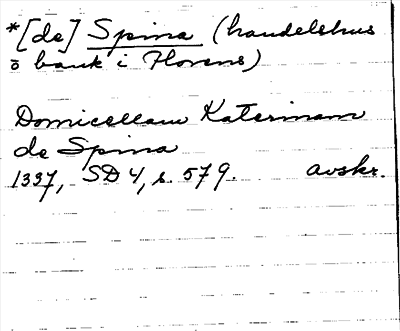 *[de] Spina (handelshus
o bank i Florens)
Domicellam Katerinam
de Spina
1337, SD 4, s. 579. avskr.